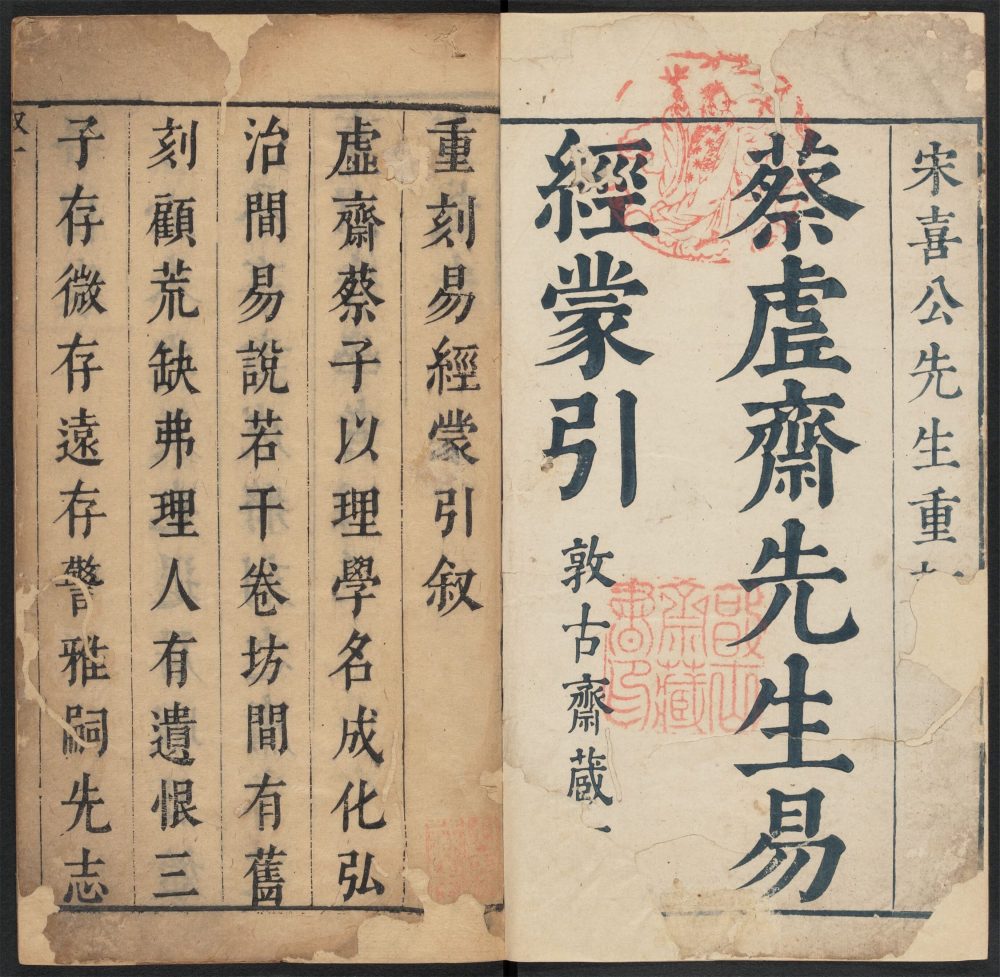 宋喜公先生重
蔡虛齋先生易
經蒙引
敦古齋藏
重刻易經蒙引叙
虛齋蔡子以理學名成化弘
治間易說若干卷坊間有舊
刻顧荒缺弗理人有遺恨三
子存微存遠存警雅嗣先志
叙一